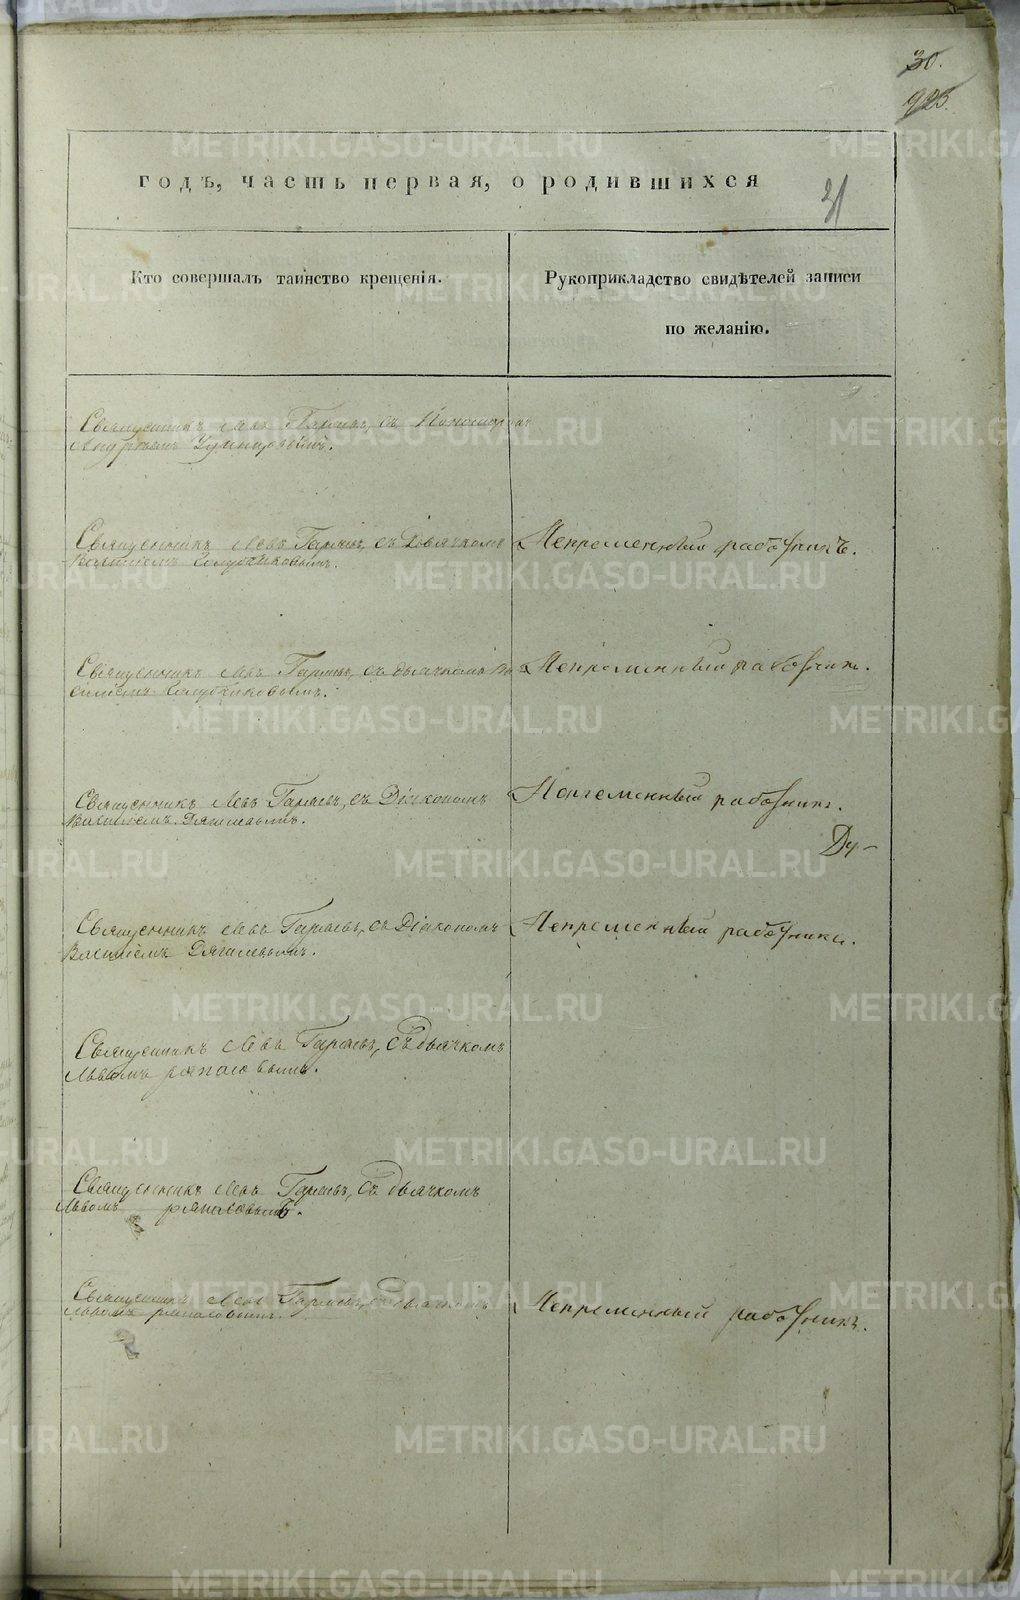 30.
923.
31
годъ, часть первая, о родившихся
Кто совершалъ таинство крещенія.
Рукоприкладство свидѣтелей записи
по желанію.
Священникъ Левъ Гаряевъ, съ Пономаремъ
Андреемъ
Священникъ Левъ Гаряевъ, съ Дьячкомъ
Василіемъ Голубчиковымъ.
Непременный работникъ.
Священникъ Левъ Гаряевъ, съ дьячкомъ Ва
силіемъ Голубчиковымъ.
Непременный работник.
Священникъ Левъ Гаряевъ, съ Діакономъ
Василіемъ Дягилевымъ.
Непременный работникъ.
Ду-
Священникъ Левъ Гаряевъ, съ Діакономъ
Василіемъ Дягилевымъ.
Непременный работники.
Священникъ Левъ Гаряевъ, съ дьячкомъ
Львомъ
Священникъ Левъ Гаряевъ, съ дьячкомъ
Львомъ
Священникъ Левъ Гаряевъ, съ дьячкомъ
Львомъ
Непременный работникъ.
METRIKI.GASO-URAL.RU